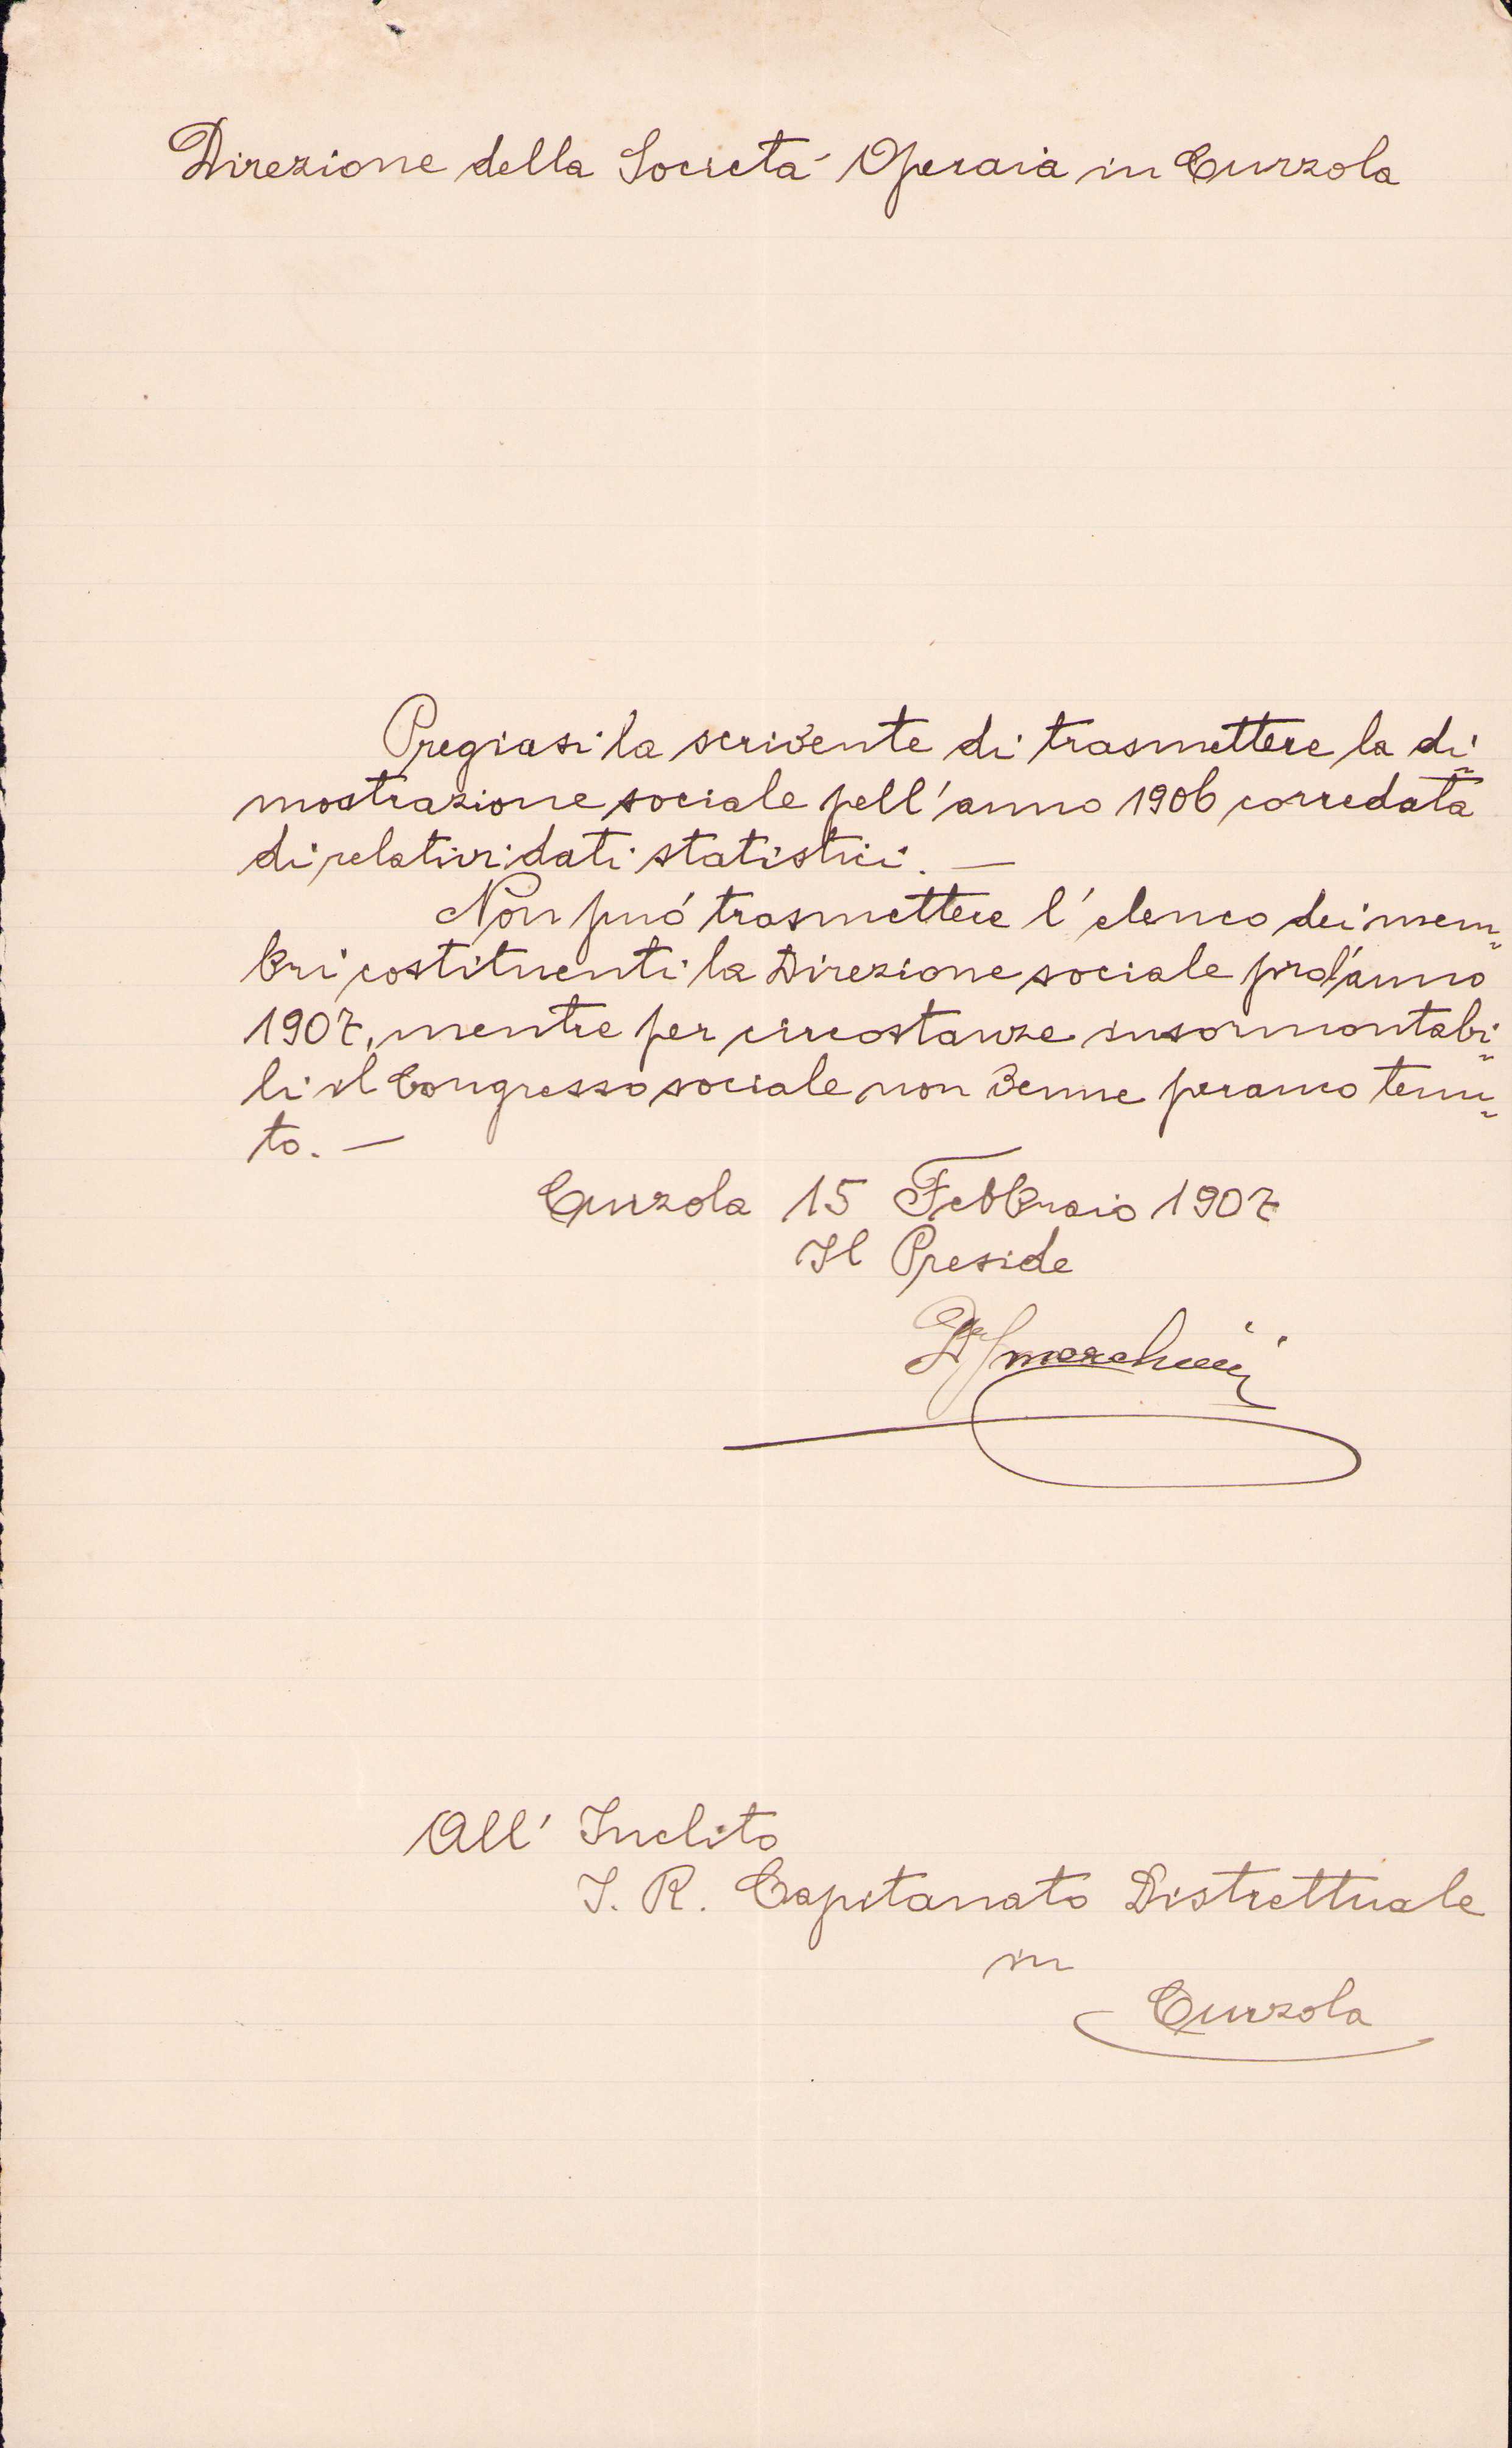 Direzione della Societá Operaia in Curzola
Pregiasi la scrivente di trasmettere la di„
mostrazione sociale pell'anno 1906 corredata
di relativi dati statistici. —
Non puó trasmettere l'elenco dei mem„
bri costituenti la Direzione sociale pell'anno
1907, mentre per circostanze insormontabi„
li il Congresso sociale non venne peranco tenu„
to. —
Curzola 15 Febbraio 1907
Il Preside
All' Inclito
I. R. Capitanato Distrettuale
in
Curzola